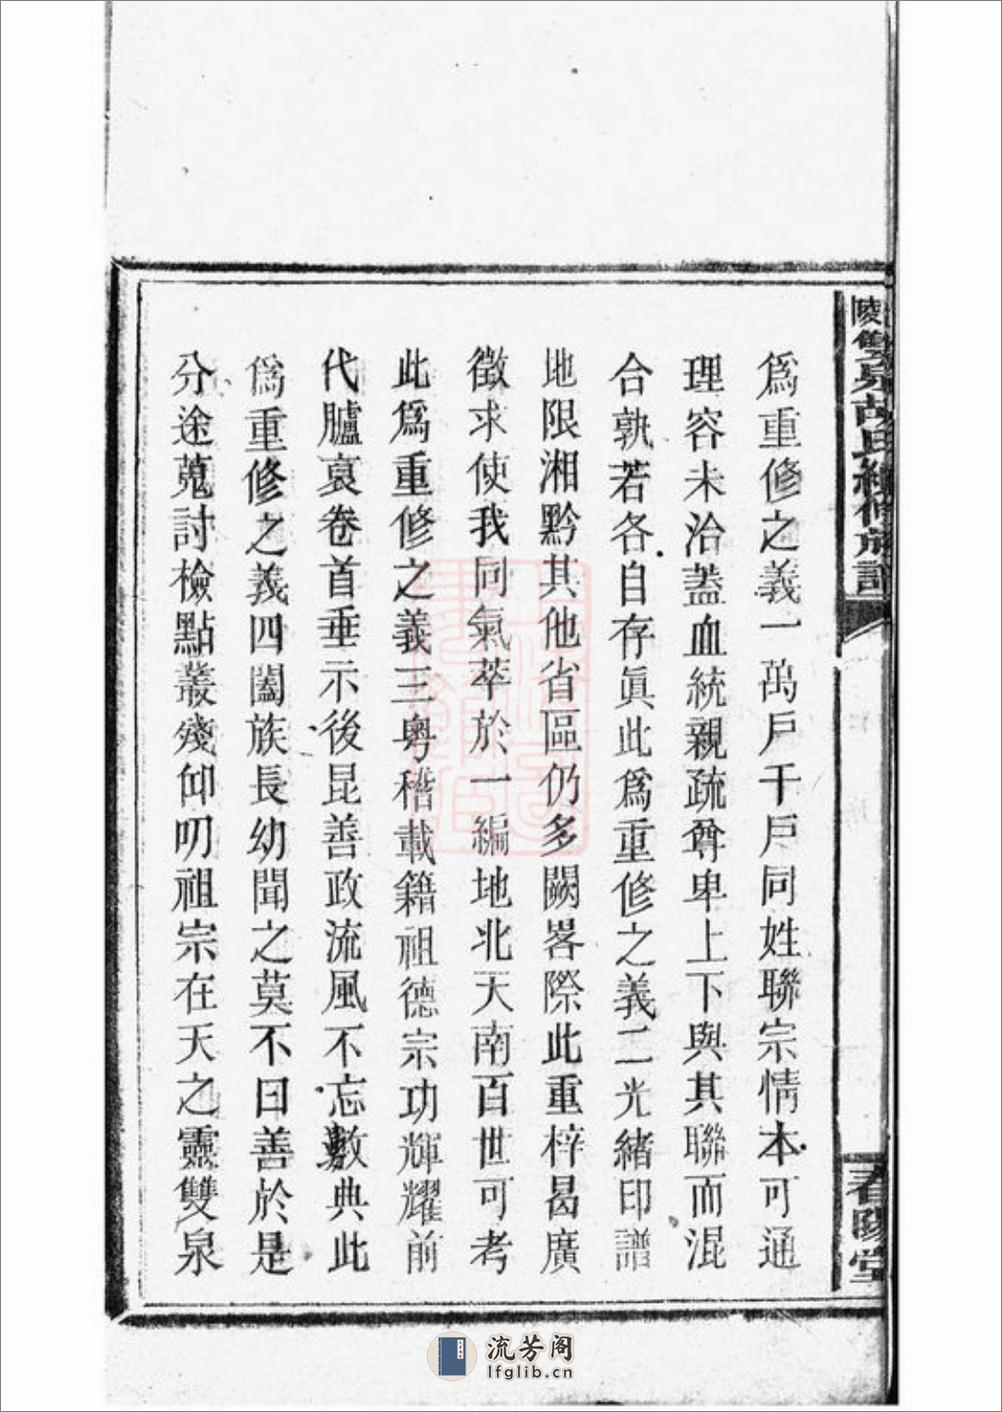 陵雙泉胡氏續修族譜
春陽堂
爲重修之義一萬戶千戶同姓聯宗情本可通
理容未治蓋血統親疏尊卑上下與其聯而混
合孰若各自存眞此爲重修之義二光緒印譜
地限湘黔其他省區仍多闕畧際此重梓曷廣
徵求使我同氣萃於一編地北天南百世可考
此爲重修之義三粵稽載籍祖德宗功輝耀前
代臚裒卷首垂示後昆善政流風不忘數典此
爲重修之義四闔族長幼聞之莫不曰善於是
分途蒐討檢點叢殘仰叨祖宗在天之靈雙泉
流芳阁
lfglib.cn